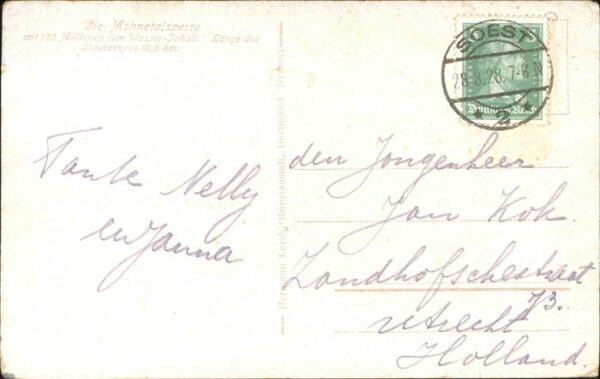 Die Möhnetalsperre
mit 130 Millionen cbm Wasser-Inhalt. Länge des
Staubeckens 10,5 km.
SOEST
28.8.28.7-8 N
* 2 *
Deutsches Reich
Hermann Lorch, Kunstanstalt, Dortmund
Tante Nelly
en Janna
den Jongenheer
Jan Kok.
Zandhofschestraat
73.
Utrecht
Holland.